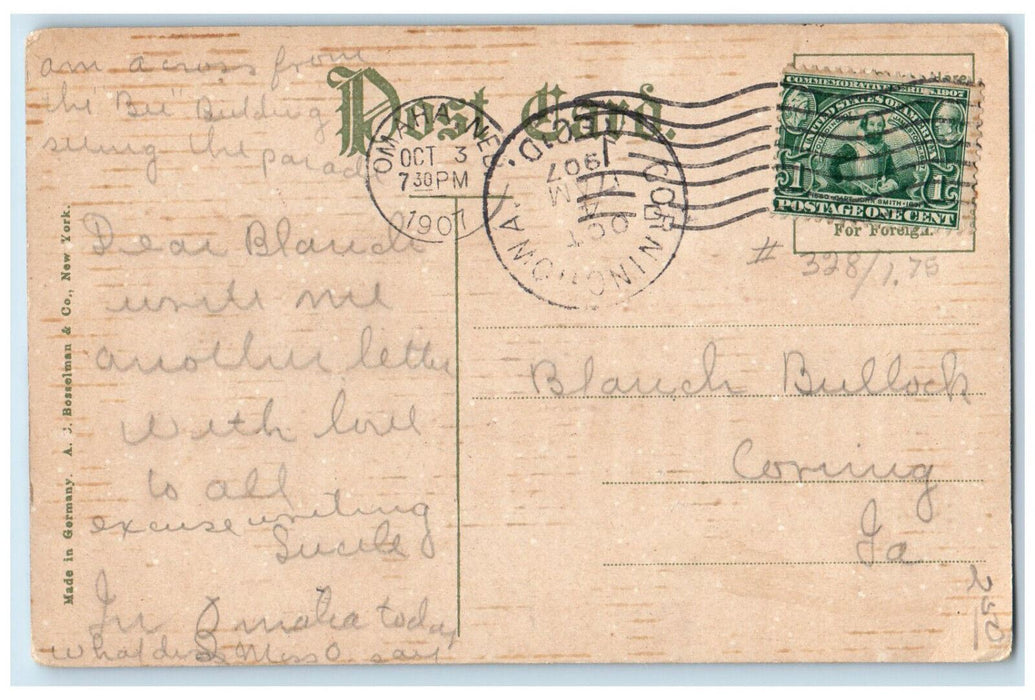 am across from
the "Bee" Building
seeing the parade
Post Card.
OMAHA, NEB.
OCT 3
730PM
1907
CORNING, IOWA
REC'D.
OCT
4
AM
1907
Here
COMMEMORATIVE SERIES 1907
UNITED STATES OF AMERICA
1580 CAPT. JOHN SMITH 1631
1 1
POSTAGE ONE CENT
For Foreign.
# 328/1.75
Dear Blanch
write me
another letter
with love
to all
excuse writing
Lucile
In Omaha today
what does Miss O. say
Blanch Bullock
Corning
Ia
250
Made in Germany. A. J. Bosselman & Co., New York.